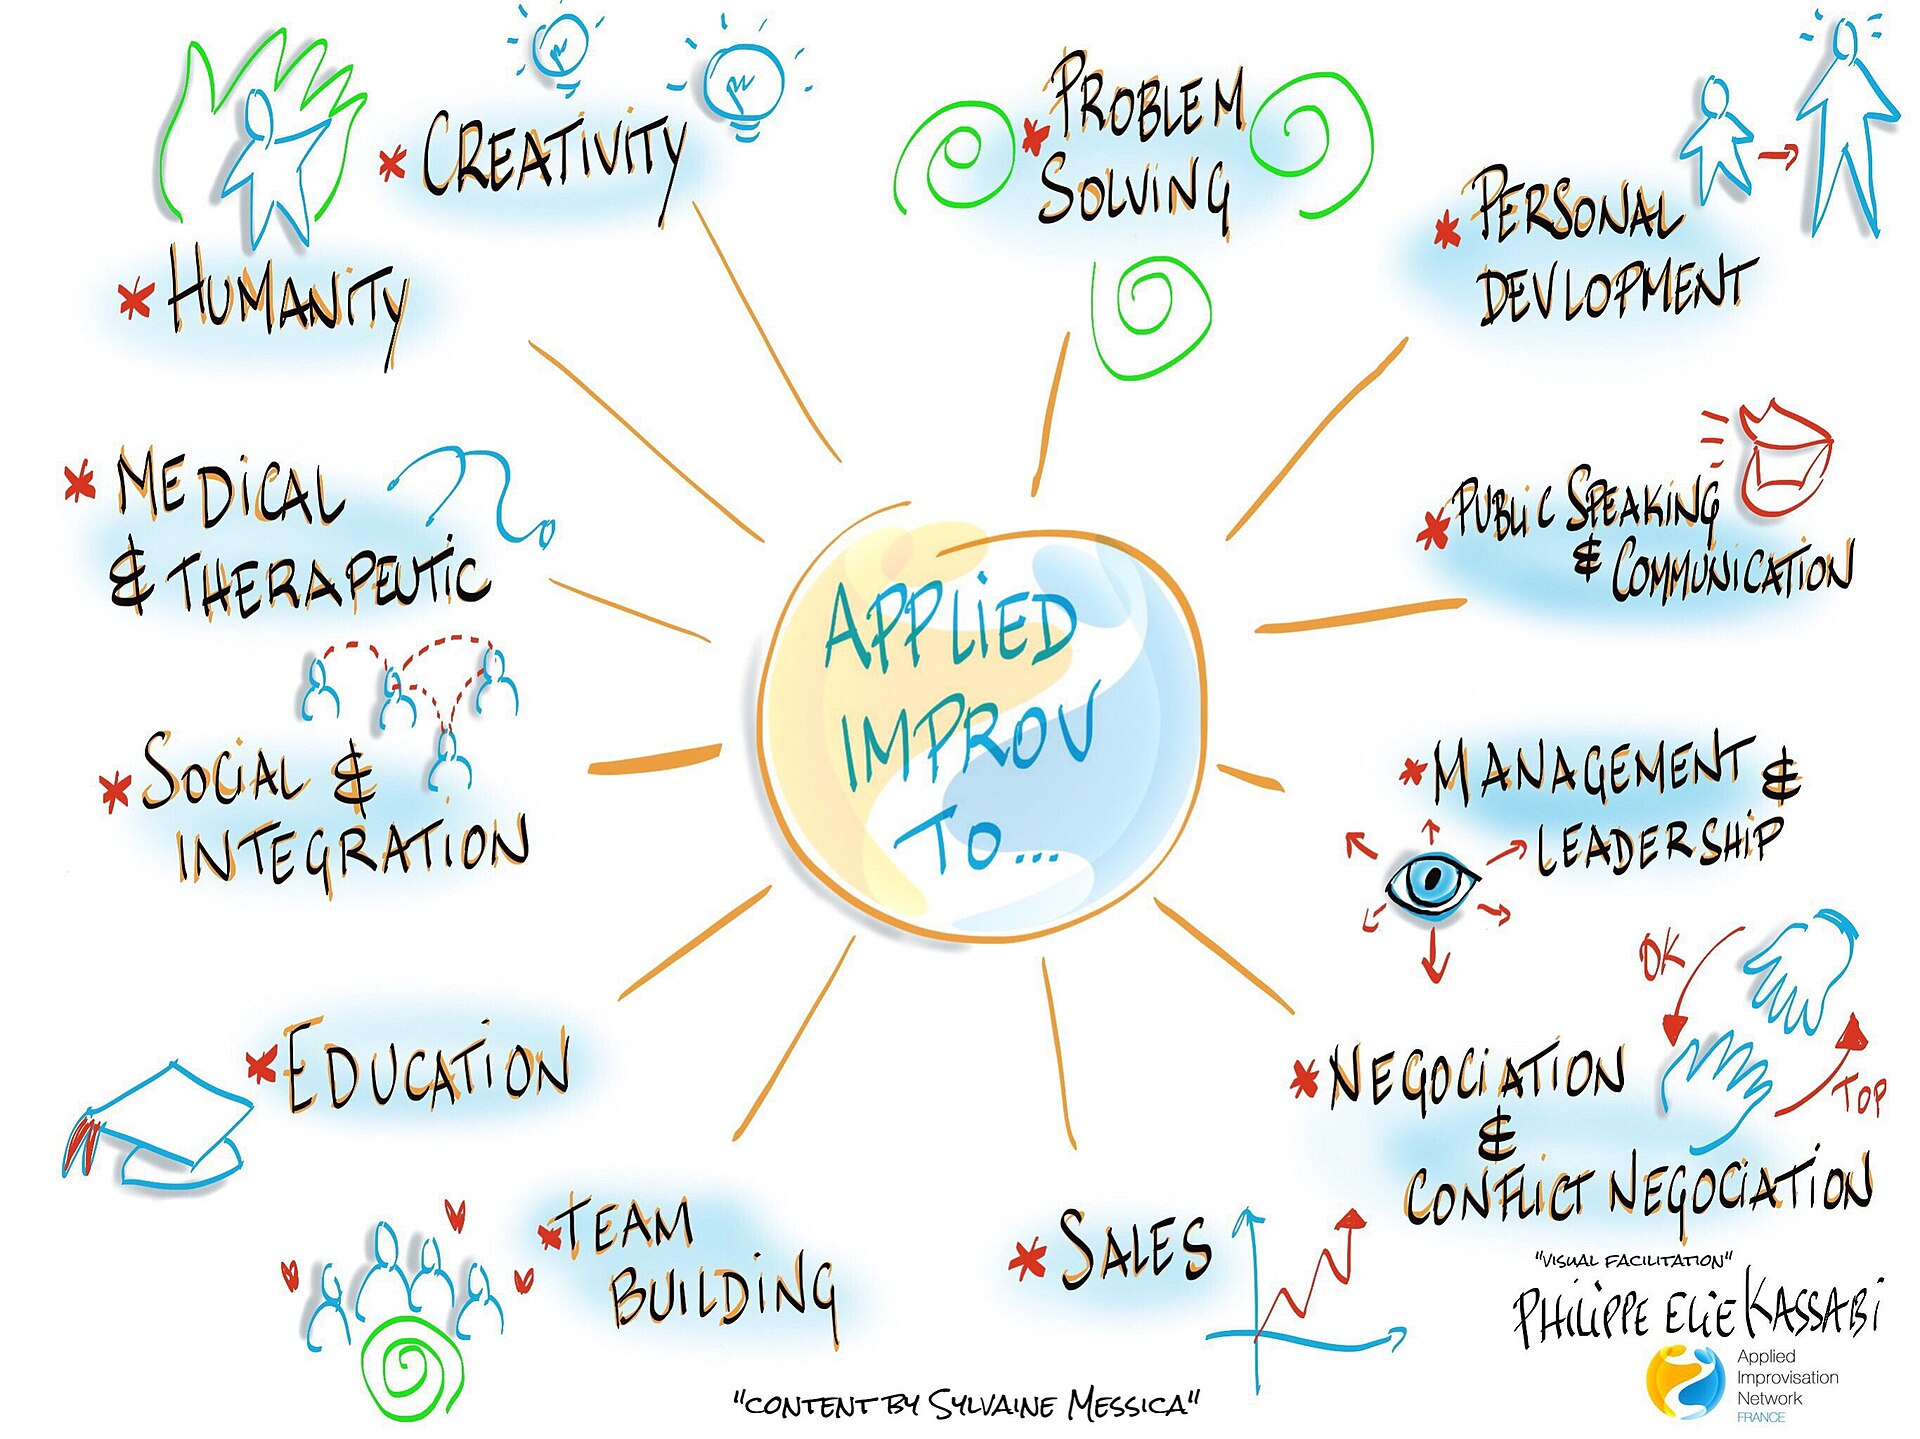 APPLIED
IMPROV
TO...
* CREATIVITY
* PROBLEM
SOLVING
* PERSONAL
DEVLOPMENT
* PUBLIC SPEAKING
& COMMUNICATION
* MANAGEMENT &
LEADERSHIP
OK
TOP
* NEGOCIATION
&
CONFLICT NEGOCIATION
* SALES
* TEAM
BUILDING
* EDUCATION
* SOCIAL &
INTEGRATION
* MEDICAL
& THERAPEUTIC
* HUMANITY
"CONTENT BY SYLVAINE MESSICA"
"VISUAL FACILITATION"
PHILIPPE ELIE KASSABI
Applied
Improvisation
Network
FRANCE